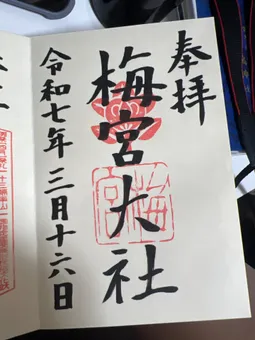 奉拝
梅宮大社
令和七年三月十六日
梅